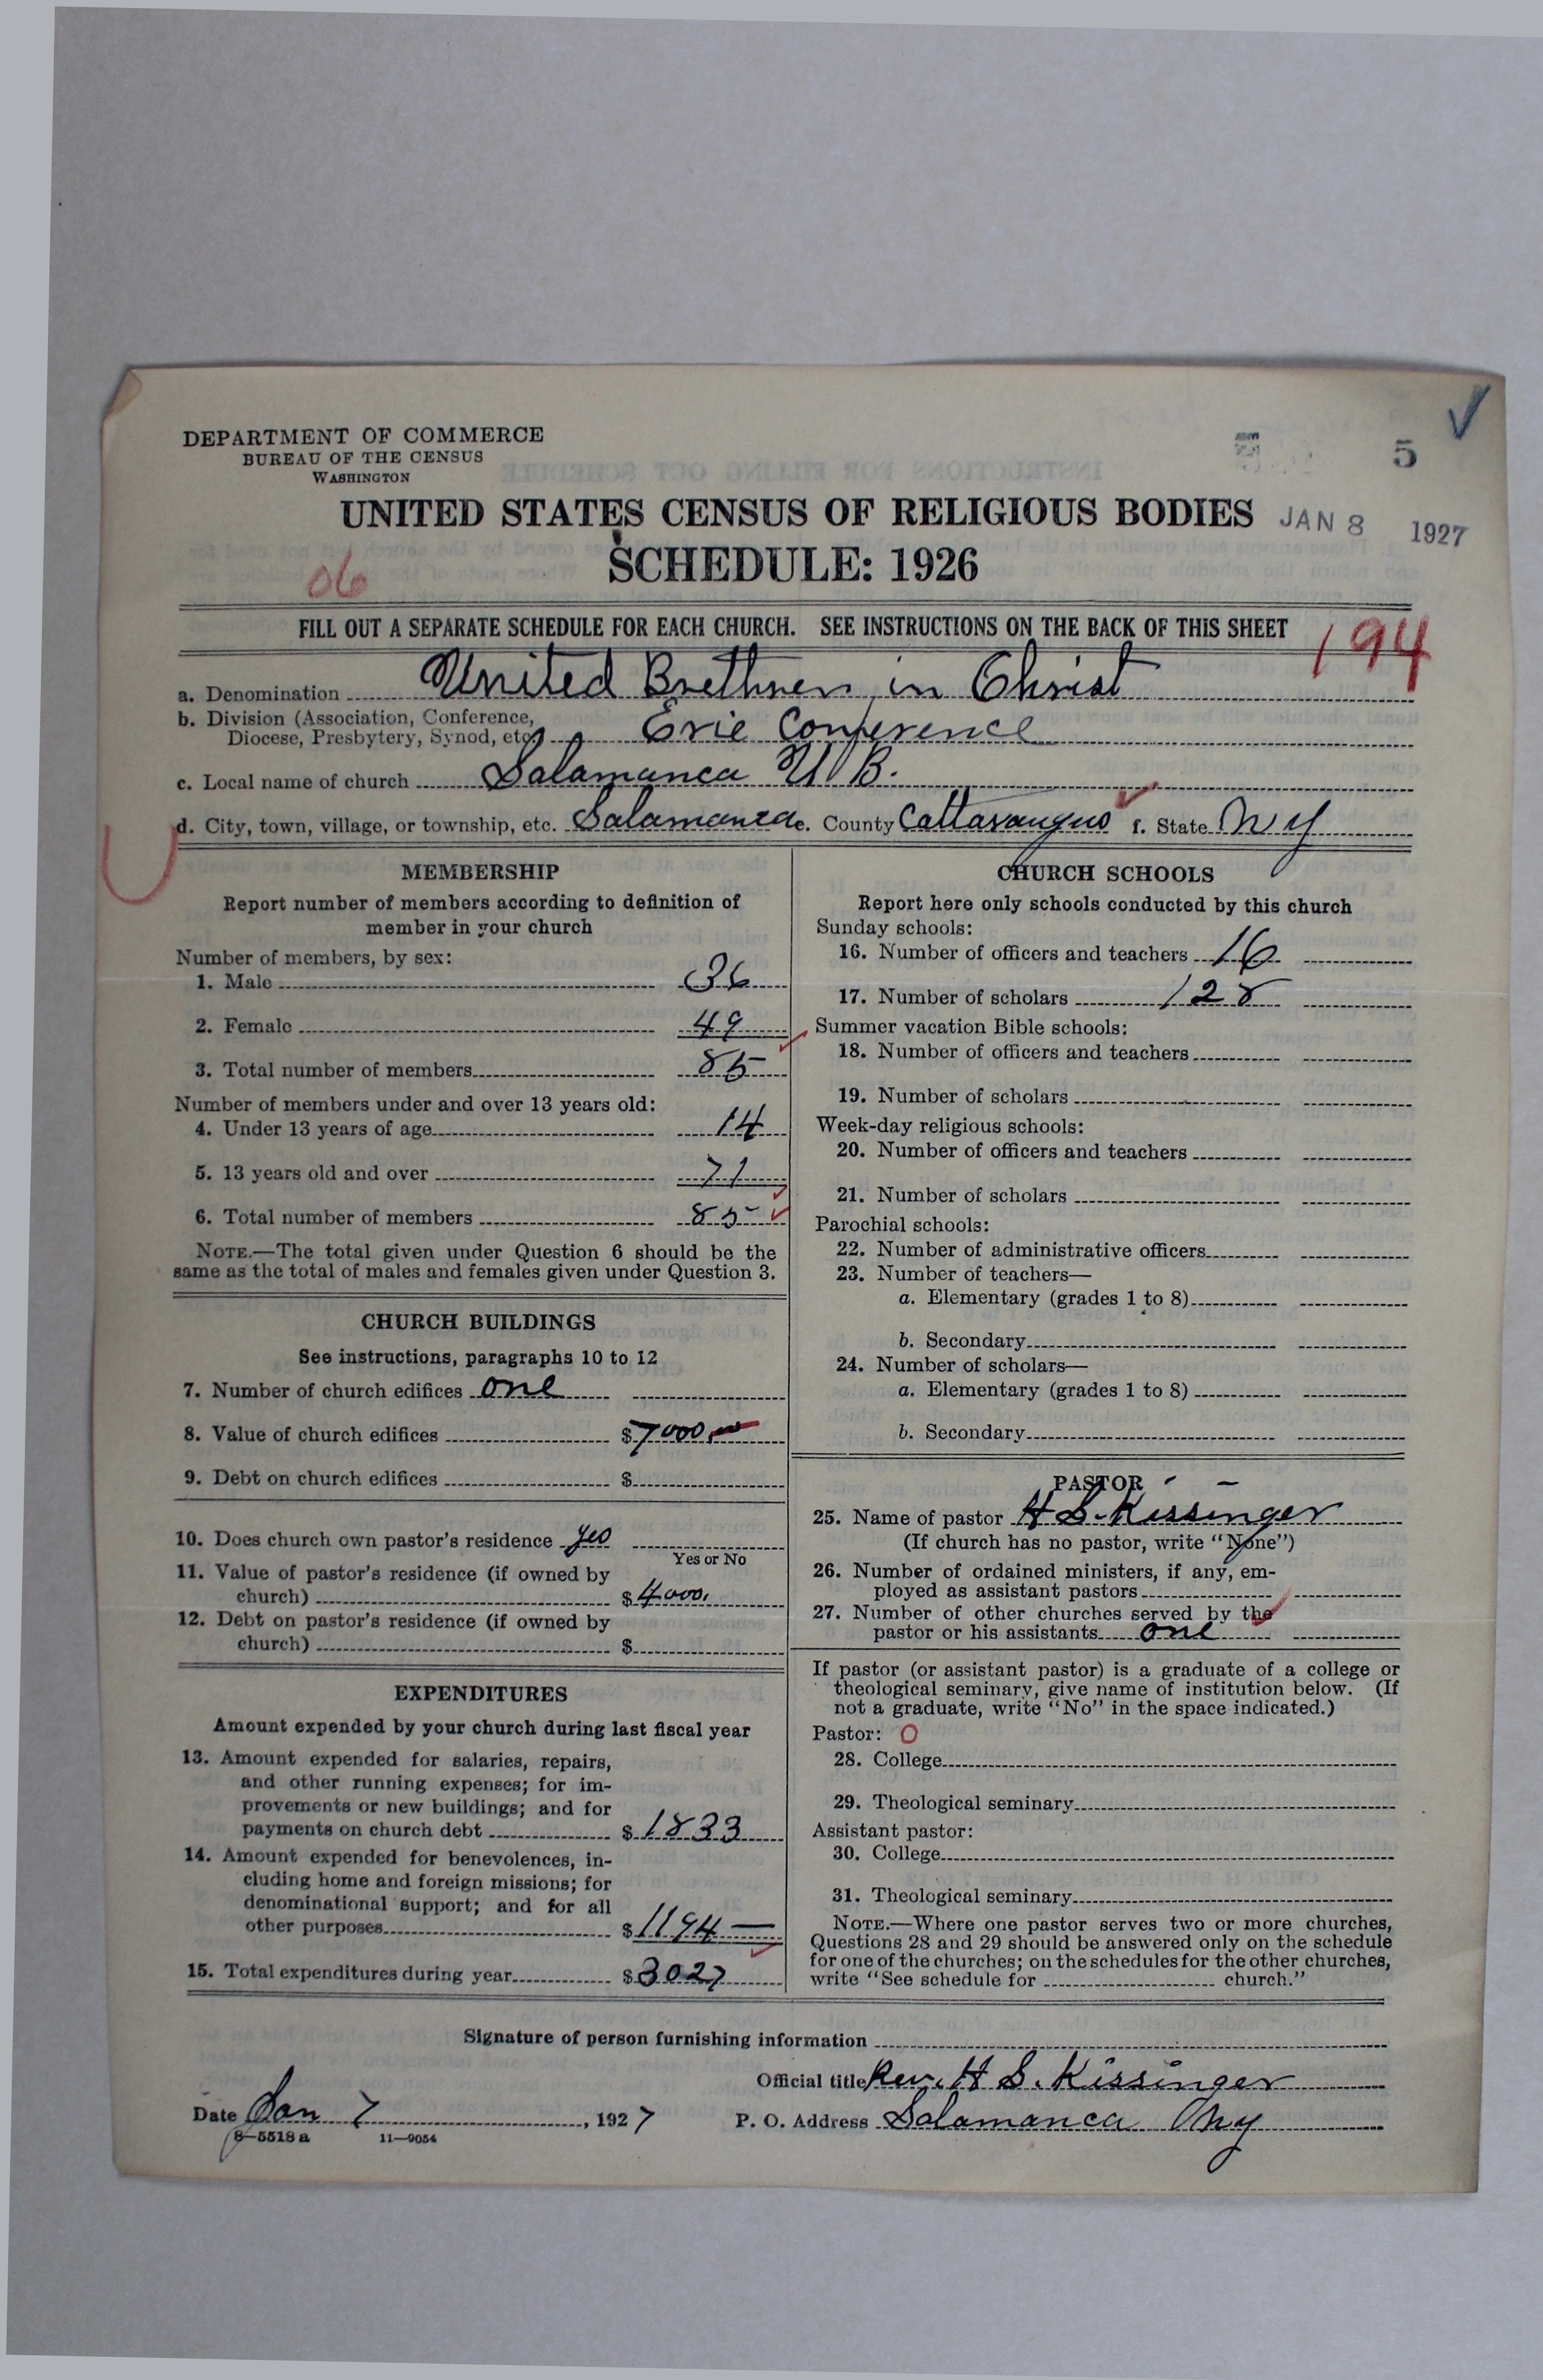 DEPARTMENT OF COMMERCE
BUREAU OF THE CENSUS
WASHINGTON
5
UNITED STATES CENSUS OF RELIGIOUS BODIES JAN 8 1927
SCHEDULE: 1926
06
FILL OUT A SEPARATE SCHEDULE FOR EACH CHURCH. SEE INSTRUCTIONS ON THE BACK OF THIS SHEET
194
a. Denomination United Brethren in Christ
b. Division (Association, Conference,
Diocese, Presbytery, Synod, etc.) Erie Conference
c. Local name of church Salamanca U B.
d. City, town, village, or township, etc. Salamanca e. County Cattaraugus f. State N Y
MEMBERSHIP
Report number of members according to definition of
member in your church
Number of members, by sex:
1. Male 36
2. Female 49
3. Total number of members 85
Number of members under and over 13 years old:
4. Under 13 years of age 14
5. 13 years old and over 71
6. Total number of members 85
NOTE.—The total given under Question 6 should be the
same as the total of males and females given under Question 3.
CHURCH BUILDINGS
See instructions, paragraphs 10 to 12
7. Number of church edifices one
8. Value of church edifices $7000.00
9. Debt on church edifices $
10. Does church own pastor's residence yes
Yes or No
11. Value of pastor's residence (if owned by
church) $4000.
12. Debt on pastor's residence (if owned by
church) $
EXPENDITURES
Amount expended by your church during last fiscal year
13. Amount expended for salaries, repairs,
and other running expenses; for im-
provements or new buildings; and for
payments on church debt $1833
14. Amount expended for benevolences, in-
cluding home and foreign missions; for
denominational support; and for all
other purposes $1194 —
15. Total expenditures during year $3027
CHURCH SCHOOLS
Report here only schools conducted by this church
Sunday schools:
16. Number of officers and teachers 16
17. Number of scholars 128
Summer vacation Bible schools:
18. Number of officers and teachers
19. Number of scholars
Week-day religious schools:
20. Number of officers and teachers
21. Number of scholars
Parochial schools:
22. Number of administrative officers
23. Number of teachers—
a. Elementary (grades 1 to 8)
b. Secondary
24. Number of scholars—
a. Elementary (grades 1 to 8)
b. Secondary
PASTOR
25. Name of pastor H S. Kissinger
(If church has no pastor, write "None")
26. Number of ordained ministers, if any, em-
ployed as assistant pastors
27. Number of other churches served by the
pastor or his assistants one
If pastor (or assistant pastor) is a graduate of a college or
theological seminary, give name of institution below. (If
not a graduate, write "No" in the space indicated.)
Pastor: O
28. College
29. Theological seminary
Assistant pastor:
30. College
31. Theological seminary
NOTE.—Where one pastor serves two or more churches,
Questions 28 and 29 should be answered only on the schedule
for one of the churches; on the schedules for the other churches,
write "See schedule for church."
Signature of person furnishing information
Official title Rev. H S. Kissinger
Date Jan 7, 1927 P. O. Address Salamanca N Y
8—5518 a 11—9054